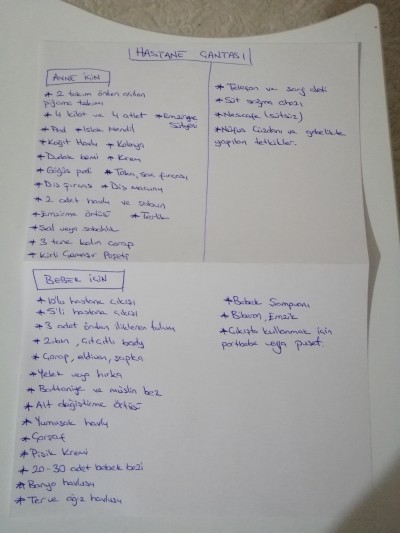 HASTANE ÇANTASI
ANNE İÇİN
* 2 takım önden açılan
pijama takımı
* 4 külot ve 4 atlet * Emzirme
Sütyeni
* Ped * Islak Mendil
* Kağıt Havlu * Kolonya
* Dudak kremi * Krem
* Göğüs pedi * Toka, saç fırçası
* Diş fırçası * Diş macunu
* 2 adet havlu ve sabun
* Emzirme örtüsü * Terlik
* Şal veya sabahlık
* 3 tane kalın çorap
* Kirli Çamaşır Poşeti
* Telefon ve şarj aleti
* Süt sağma cihazı
* Nescafe (sütsüz)
* Nüfus Cüzdanı ve gebelikte
yapılan tetkikler.
BEBEK İÇİN
* 10'lu hastane çıkışı
* 5'li hastane çıkışı
* 3 adet önden iliklenen tulum
* Zıbın, Çıtçıtlı body
* Çorap, eldiven, şapka
* Yelek veya hırka
* Battaniye ve müslin bez
* Alt değiştirme örtüsü
* Yumuşak havlu
* Çarşaf
* Pişik Kremi
* 20-30 adet bebek bezi
* Banyo havlusu
* Ter ve ağız havlusu
* Bebek Şampuanı
* Biberon, Emzik
* Çıkışta kullanmak için
portbebe veya puset.